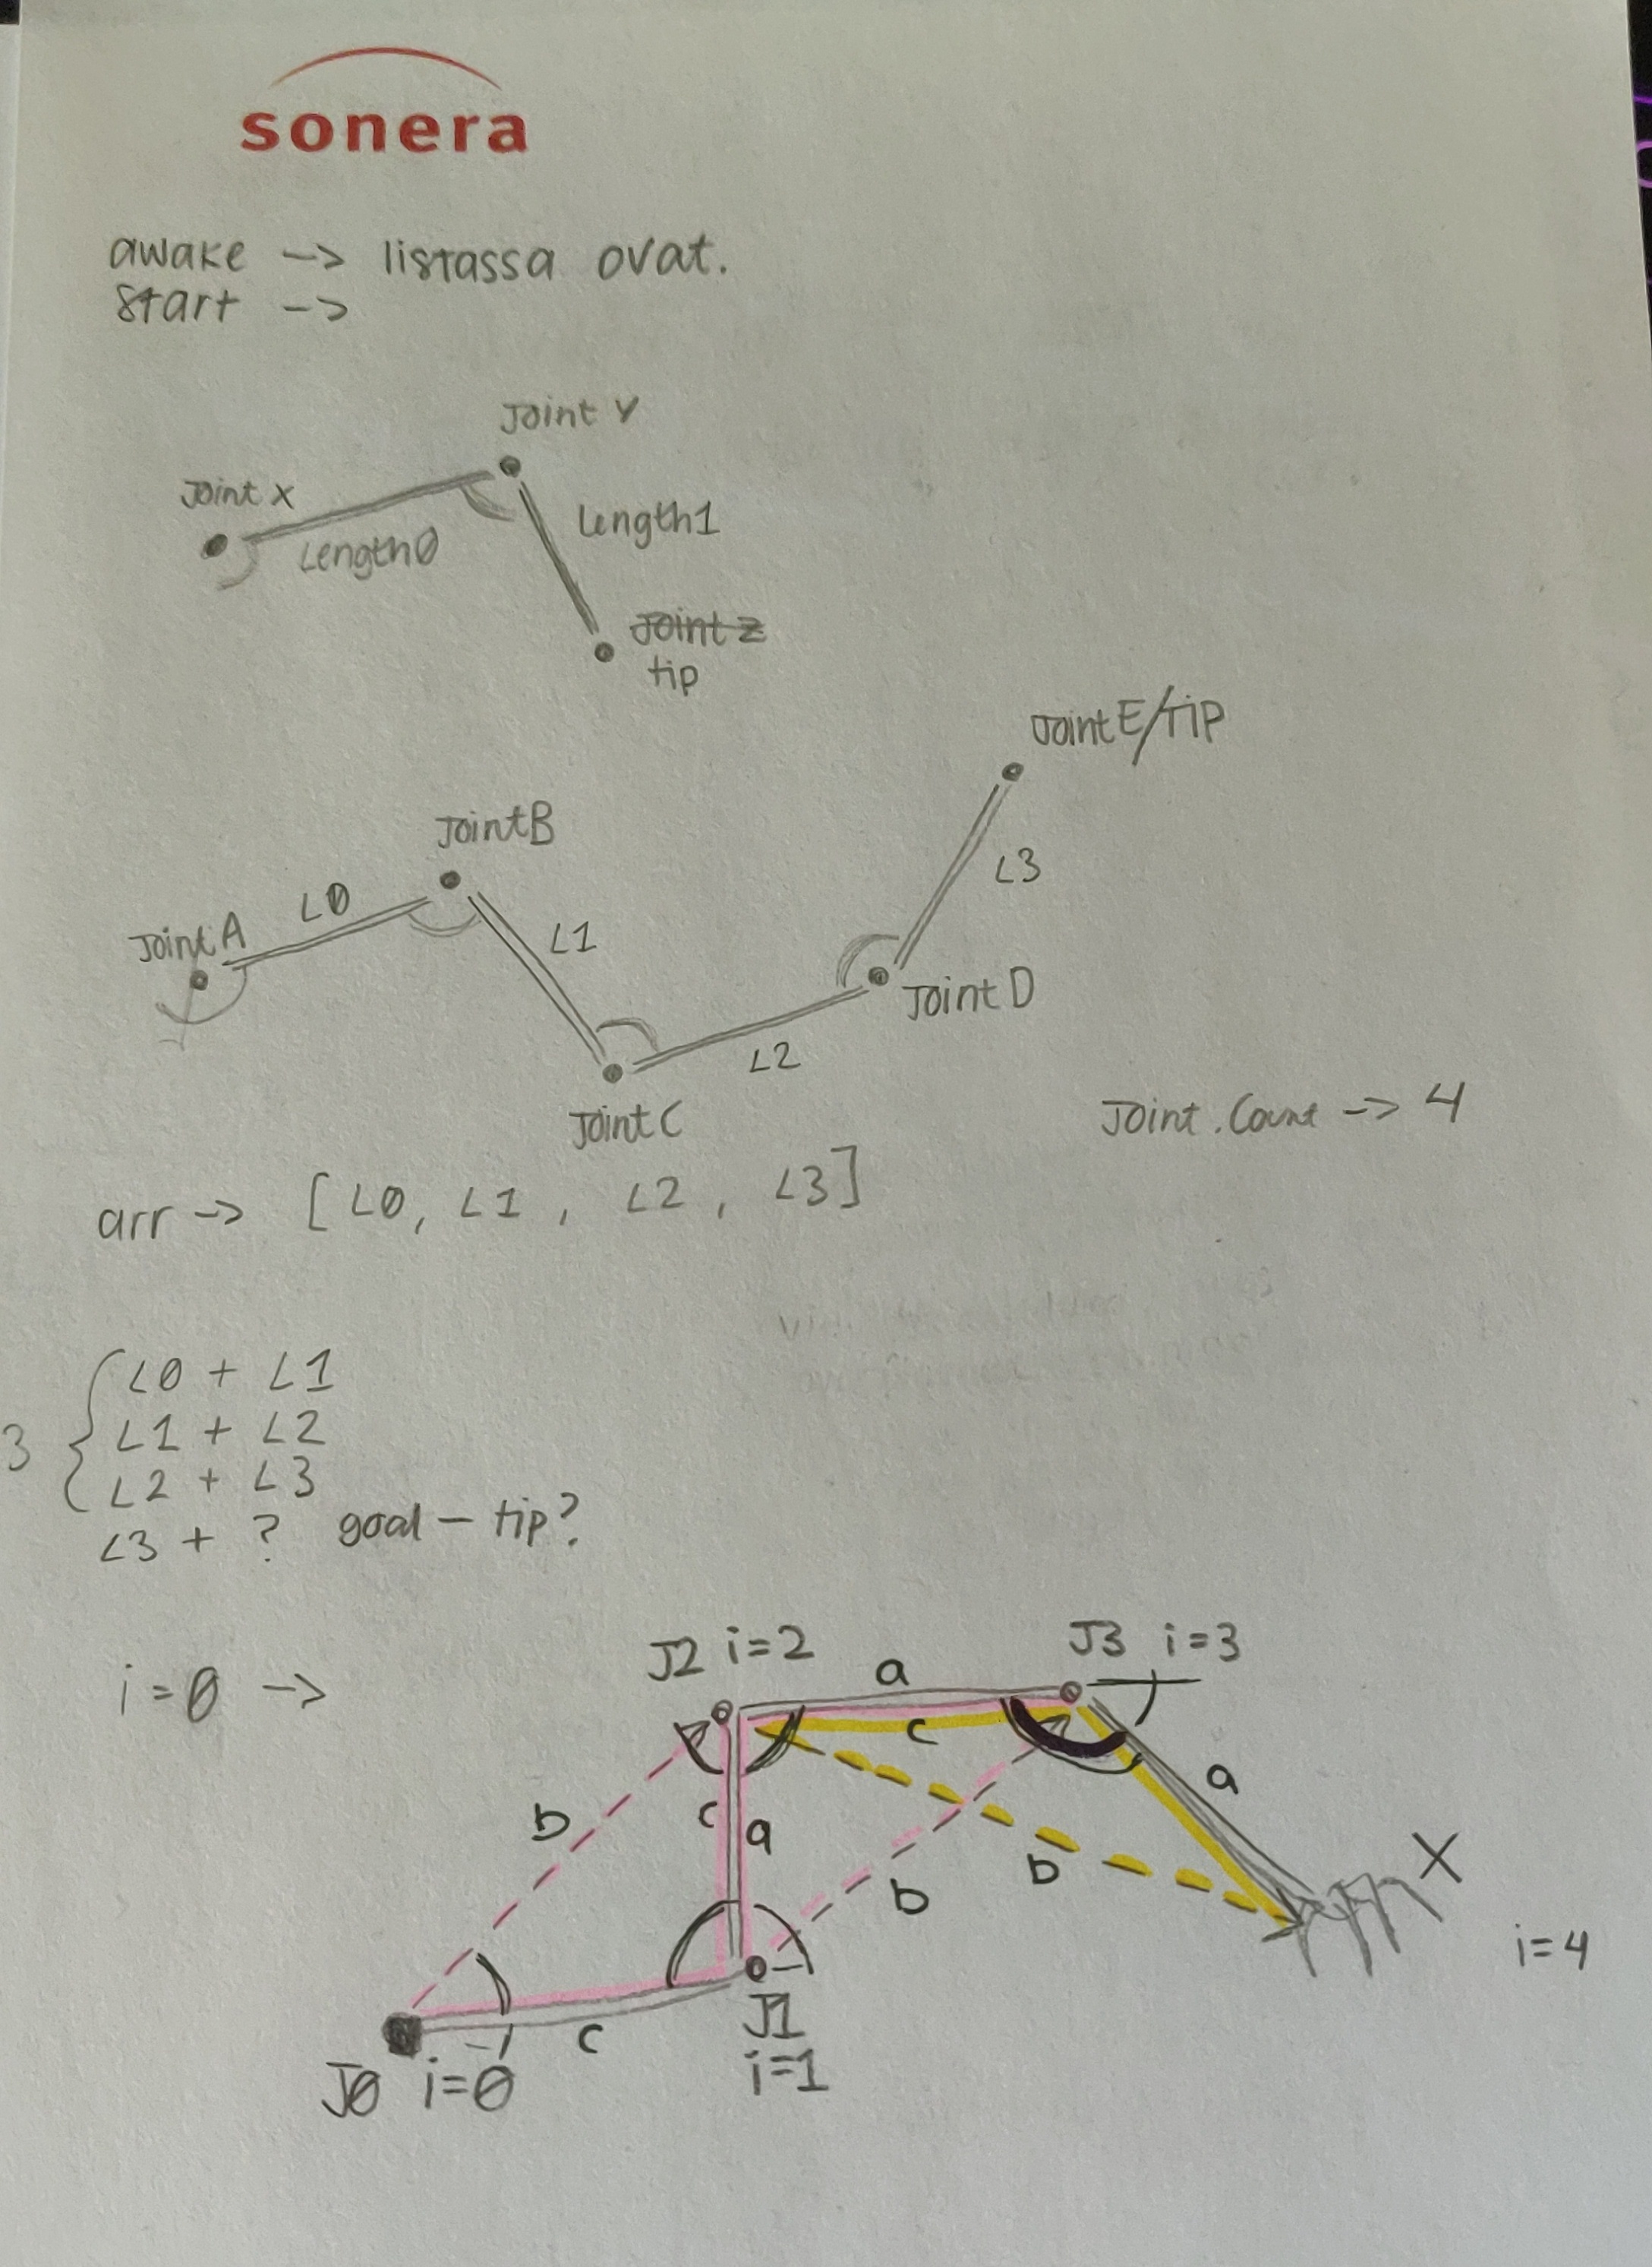 sonera
awake -> listassa ovat.
start ->
Joint Y
Joint X
Length0
Length1
Joint Z
tip
JointE/Tip
JointB
L0
L3
JointA
L1
JointD
L2
JointC
Joint.Count -> 4
arr -> [L0, L1, L2, L3]
L0 + L1
3
L1 + L2
L2 + L3
L3 + ? goal - tip?
i=0 ->
J2 i=2
J3 i=3
a
c
a
b
c
a
b
b
X
i=4
c
J1
i=1
J0 i=0